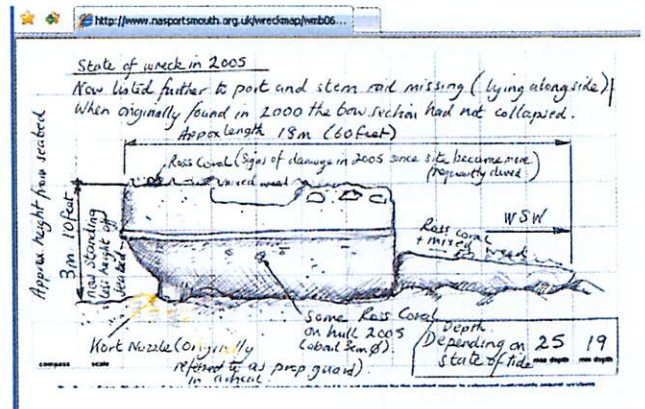 http://www.nasportsmouth.org.uk/wreckmap/wmb06...
State of wreck in 2005
Now listed further to port and stem rod missing (lying alongside)
When originally found in 2000 the bow section had not collapsed.
Approx length 18m (60 feet)
Ross Coral (Signs of damage in 2005 since site became more
frequently dived)
mixed weed
Approx height from seabed
3m 10 feet
now standing
less height off
seabed
Ross coral
+ mixed weed
WSW
some Ross Coral
on hull 2005
(about 3cm ø)
Kort Nozzle (originally
referred to as prop guard)
Depth
Depending on
state of tide
25 19
max depth min depth
compass scale